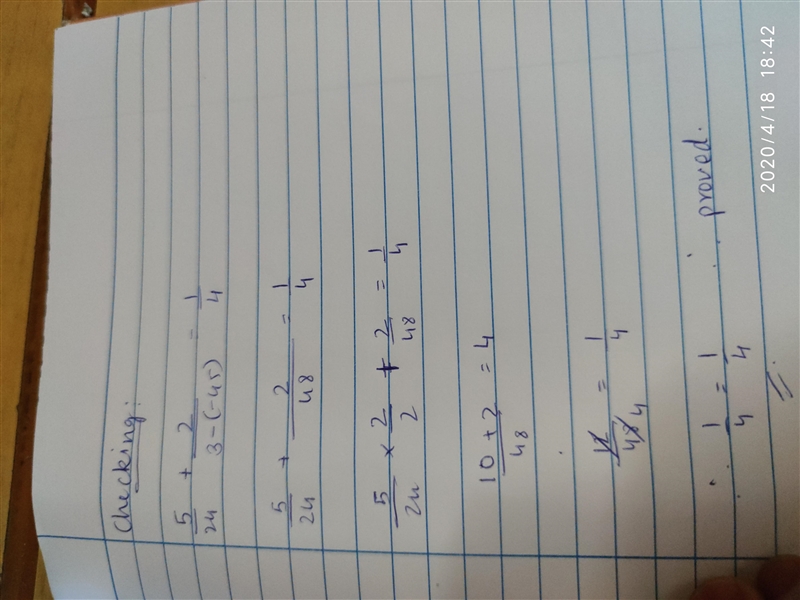 Checking:
5/24 + 2/3-(-45) = 1/4
5/24 + 2/48 = 1/4
5/24 × 2/2 + 2/48 = 1/4
10 + 2/48 = 4
12/48 4 = 1/4
∴ 1/4 = 1/4 ∴ proved.
2020/4/18 18:42